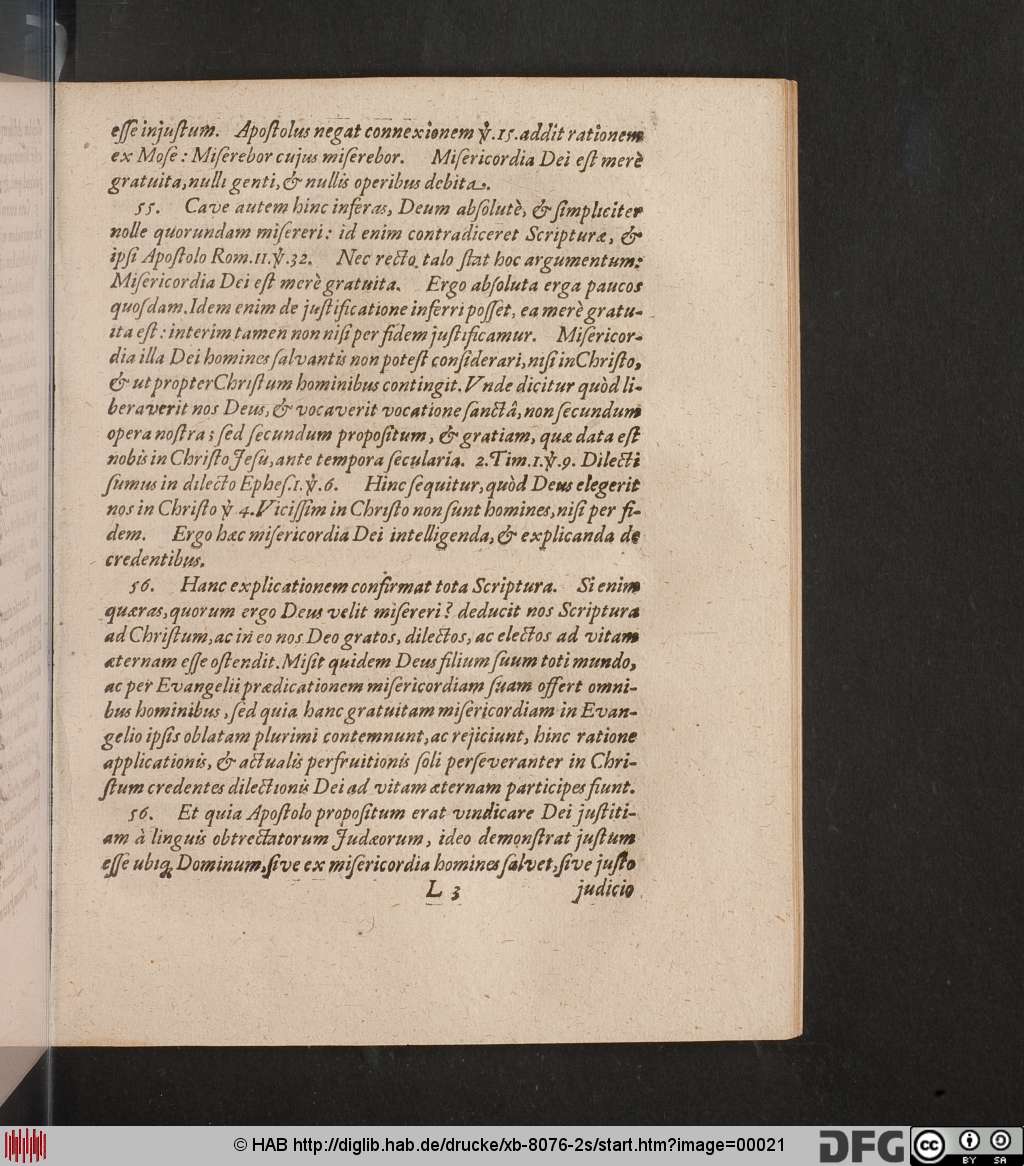 eſſe injuſtum. Apoſtolus negat connexionem ℣.15. addit rationem
ex Moſe: Miſerebor cujus miſerebor. Miſericordia Dei eſt merè
gratuita, nulli genti, & nullis operibus debita.
55. Cave autem hinc inferas, Deum abſolutè, & ſimpliciter
nolle quorundam miſereri: id enim contradiceret Scripturæ, &
ipſi Apoſtolo Rom.11.℣.32. Nec recto talo ſtat hoc argumentum:
Miſericordia Dei eſt merè gratuita. Ergo abſoluta erga paucos
quoſdam. Idem enim de juſtificatione inferri poſſet, ea merè gratu-
ita eſt: interim tamen non niſi per fidem juſtificamur. Miſericor-
dia illa Dei homines ſalvantis non poteſt conſiderari, niſi in Chriſto,
& ut propter Chriſtum hominibus contingit. Vnde dicitur quòd li-
beraverit nos Deus, & vocaverit vocatione ſanctâ, non ſecundum
opera noſtra; ſed ſecundum propoſitum, & gratiam, quæ data eſt
nobis in Chriſto Jeſu, ante tempora ſecularia. 2.Tim.1.℣.9. Dilecti
ſumus in dilecto Epheſ.1.℣.6. Hinc ſequitur, quòd Deus elegerit
nos in Chriſto ℣ 4. Viciſſim in Chriſto non ſunt homines, niſi per fi-
dem. Ergo hæc miſericordia Dei intelligenda, & explicanda de
credentibus.
56. Hanc explicationem confirmat tota Scriptura. Si enim
quæras, quorum ergo Deus velit miſereri? deducit nos Scriptura
ad Chriſtum, ac in eo nos Deo gratos, dilectos, ac electos ad vitam
æternam eſſe oſtendit. Miſit quidem Deus filium ſuum toti mundo,
ac per Evangelii prædicationem miſericordiam ſuam offert omni-
bus hominibus, ſed quia hanc gratuitam miſericordiam in Evan-
gelio ipſis oblatam plurimi contemnunt, ac rejiciunt, hinc ratione
applicationis, & actualis perfruitionis ſoli perſeveranter in Chri-
ſtum credentes dilectionis Dei ad vitam æternam participes fiunt.
56. Et quia Apoſtolo propoſitum erat vindicare Dei juſtiti-
am à linguis obtrectatorum Judæorum, ideo demonſtrat juſtum
eſſe ubiq; Dominum, ſive ex miſericordia homines ſalvet, ſive juſto
L 3 judicio
© HAB http://diglib.hab.de/drucke/xb-8076-2s/start.htm?image=00021 DFG cc BY SA